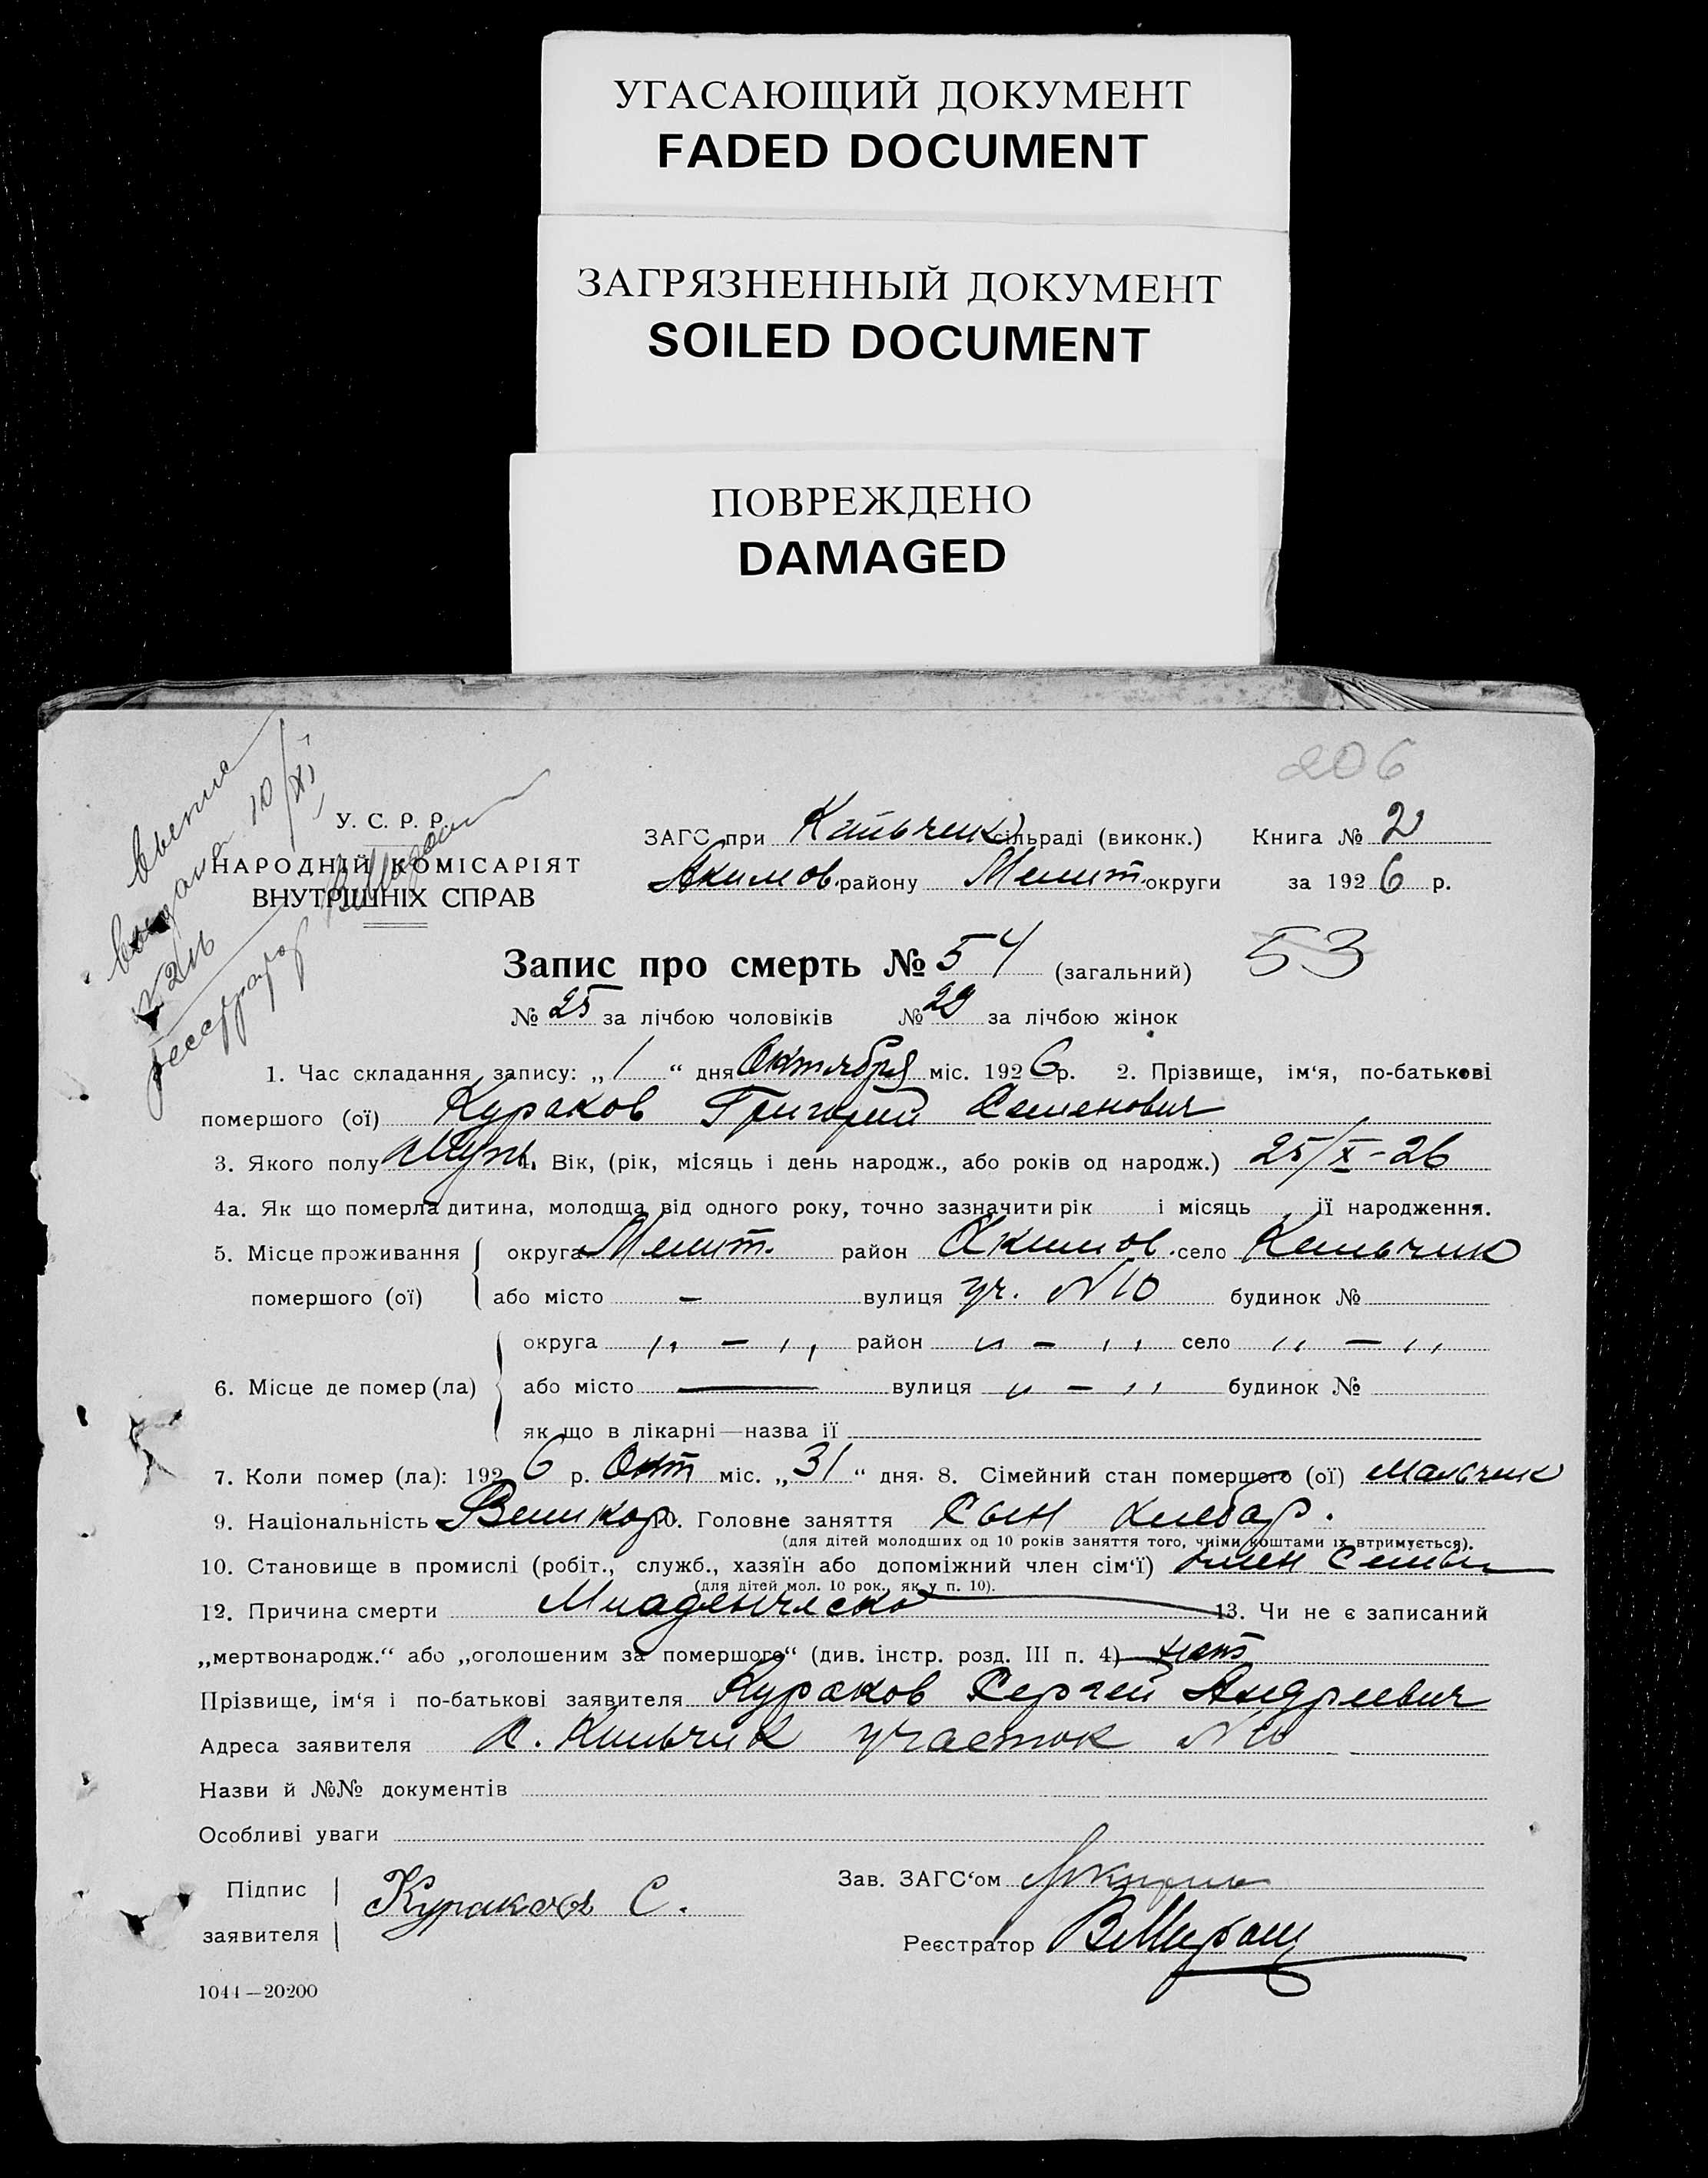 УГАСАЮЩИЙ ДОКУМЕНТ
FADED DOCUMENT
ЗАГРЯЗНЕННЫЙ ДОКУМЕНТ
SOILED DOCUMENT
ПОВРЕЖДЕНО
DAMAGED
206
выдана 10/XI
У. С. Р. Р.
НАРОДНІЙ КОМІСАРІЯТ
ВНУТРІШНІХ СПРАВ
ЗАГС при сільраді (виконк.) Книга № 2
Акимов. району Мелит. округи за 1926 р.
Запис про смерть № 54 (загальний) 53
№ 25 за лічбою чоловіків № 29 за лічбою жінок
1. Час складання запису: „ 1 “ дня Октября міс. 1926 р. 2. Прізвище, ім‘я, по-батькові
помершого (ої) Кураков Григорий Семенович
3. Якого полу муж. 4. Вік, (рік, місяць і день народж., або років од народж.) 25/X-26
4а. Як що померла дитина, молодща від одного року, точно зазначити рік і місяць її народження.
5. Місце проживання округа Мелит. район Акимов. село Кильчик
помершого (ої) або місто - вулиця уч. №10 будинок №
округа „ - „ район „ - „ село „ - „
6. Місце де помер (ла) або місто — вулиця „ - „ будинок №
як що в лікарні—назва її
7. Коли помер (ла): 1926 р. Окт міс. „ 31 “ дня. 8. Сімейний стан помершого (ої) мальчик
9. Національність Великор. 10. Головне заняття Сын хлебор.
(для дітей молодших од 10 років заняття того, чиїми коштами їх втримується).
10. Становище в промислі (робіт., служб., хазяїн або допоміжний член сім‘ї) член семьи
(для дітей мол. 10 рок., як у п. 10).
12. Причина смерти Младенческо 13. Чи не є записаний
„мертвонародж.“ або „оголошеним за помершого“ (див. інстр. розд. III п. 4) нет
Прізвище, ім‘я і по-батькові заявителя Кураков Сергей Андреевич
Адреса заявителя с. Кильчик участок №10
Назви й №№ документів
Особливі уваги
Підпис
заявителя
Кураков С.
Зав. ЗАГС‘ом
Реєстратор
1044—20200